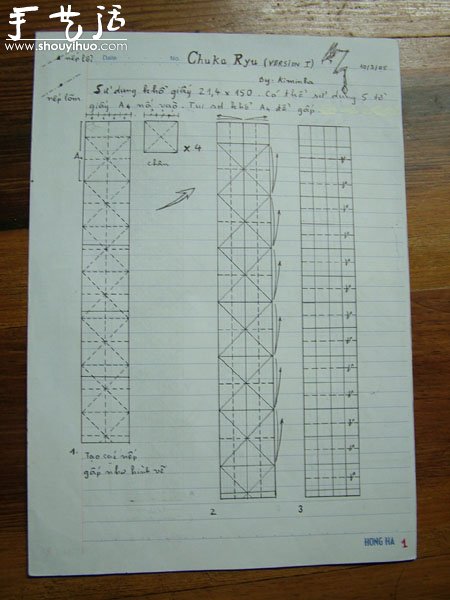 手艺活
www.shouyihuo.com
nếp lồi
Date
No.
Chuka Ryu (VERSION I)
10/3/05
By: Kiminha
nếp lõm
Sử dụng khổ giấy 21,4 x 150. Có thể sử dụng 5 tờ
giấy A4 nối vào. Tui sd khổ A4 để gấp.
A4
x 4
chân
1. Tạo các nếp
gấp như hình vẽ
2
3
HONG HA 1